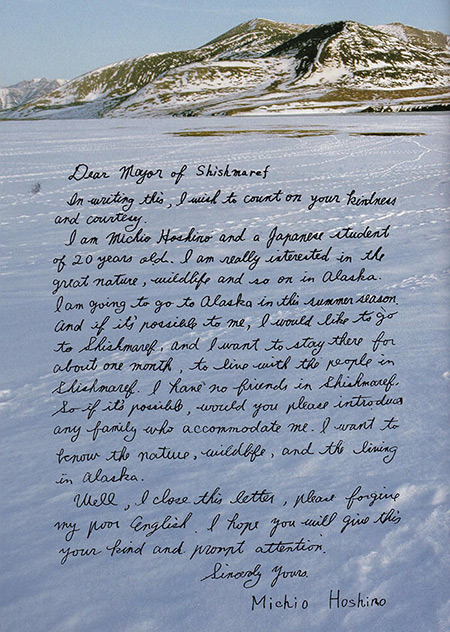 Dear Major of Shishmaref
In writing this, I wish to count on your kindness
and courtesy.
I am Michio Hoshino and a Japanese student
of 20 years old. I am really interested in the
great nature, wildlife and so on in Alaska.
I am going to go to Alaska in this summer season.
And if it's possible to me, I would like to go
to Shishmaref, and I want to stay there for
about one month, to live with the people in
Shishmaref. I have no friends in Shishmaref.
So if it's possible, would you please introduce
any family who accommodate me. I want to
know the nature, wildlife, and the living
in Alaska.
Well, I close this letter, please forgive
my poor English. I hope you will give this
your kind and prompt attention.
Sincerely Yours.
Michio Hoshino